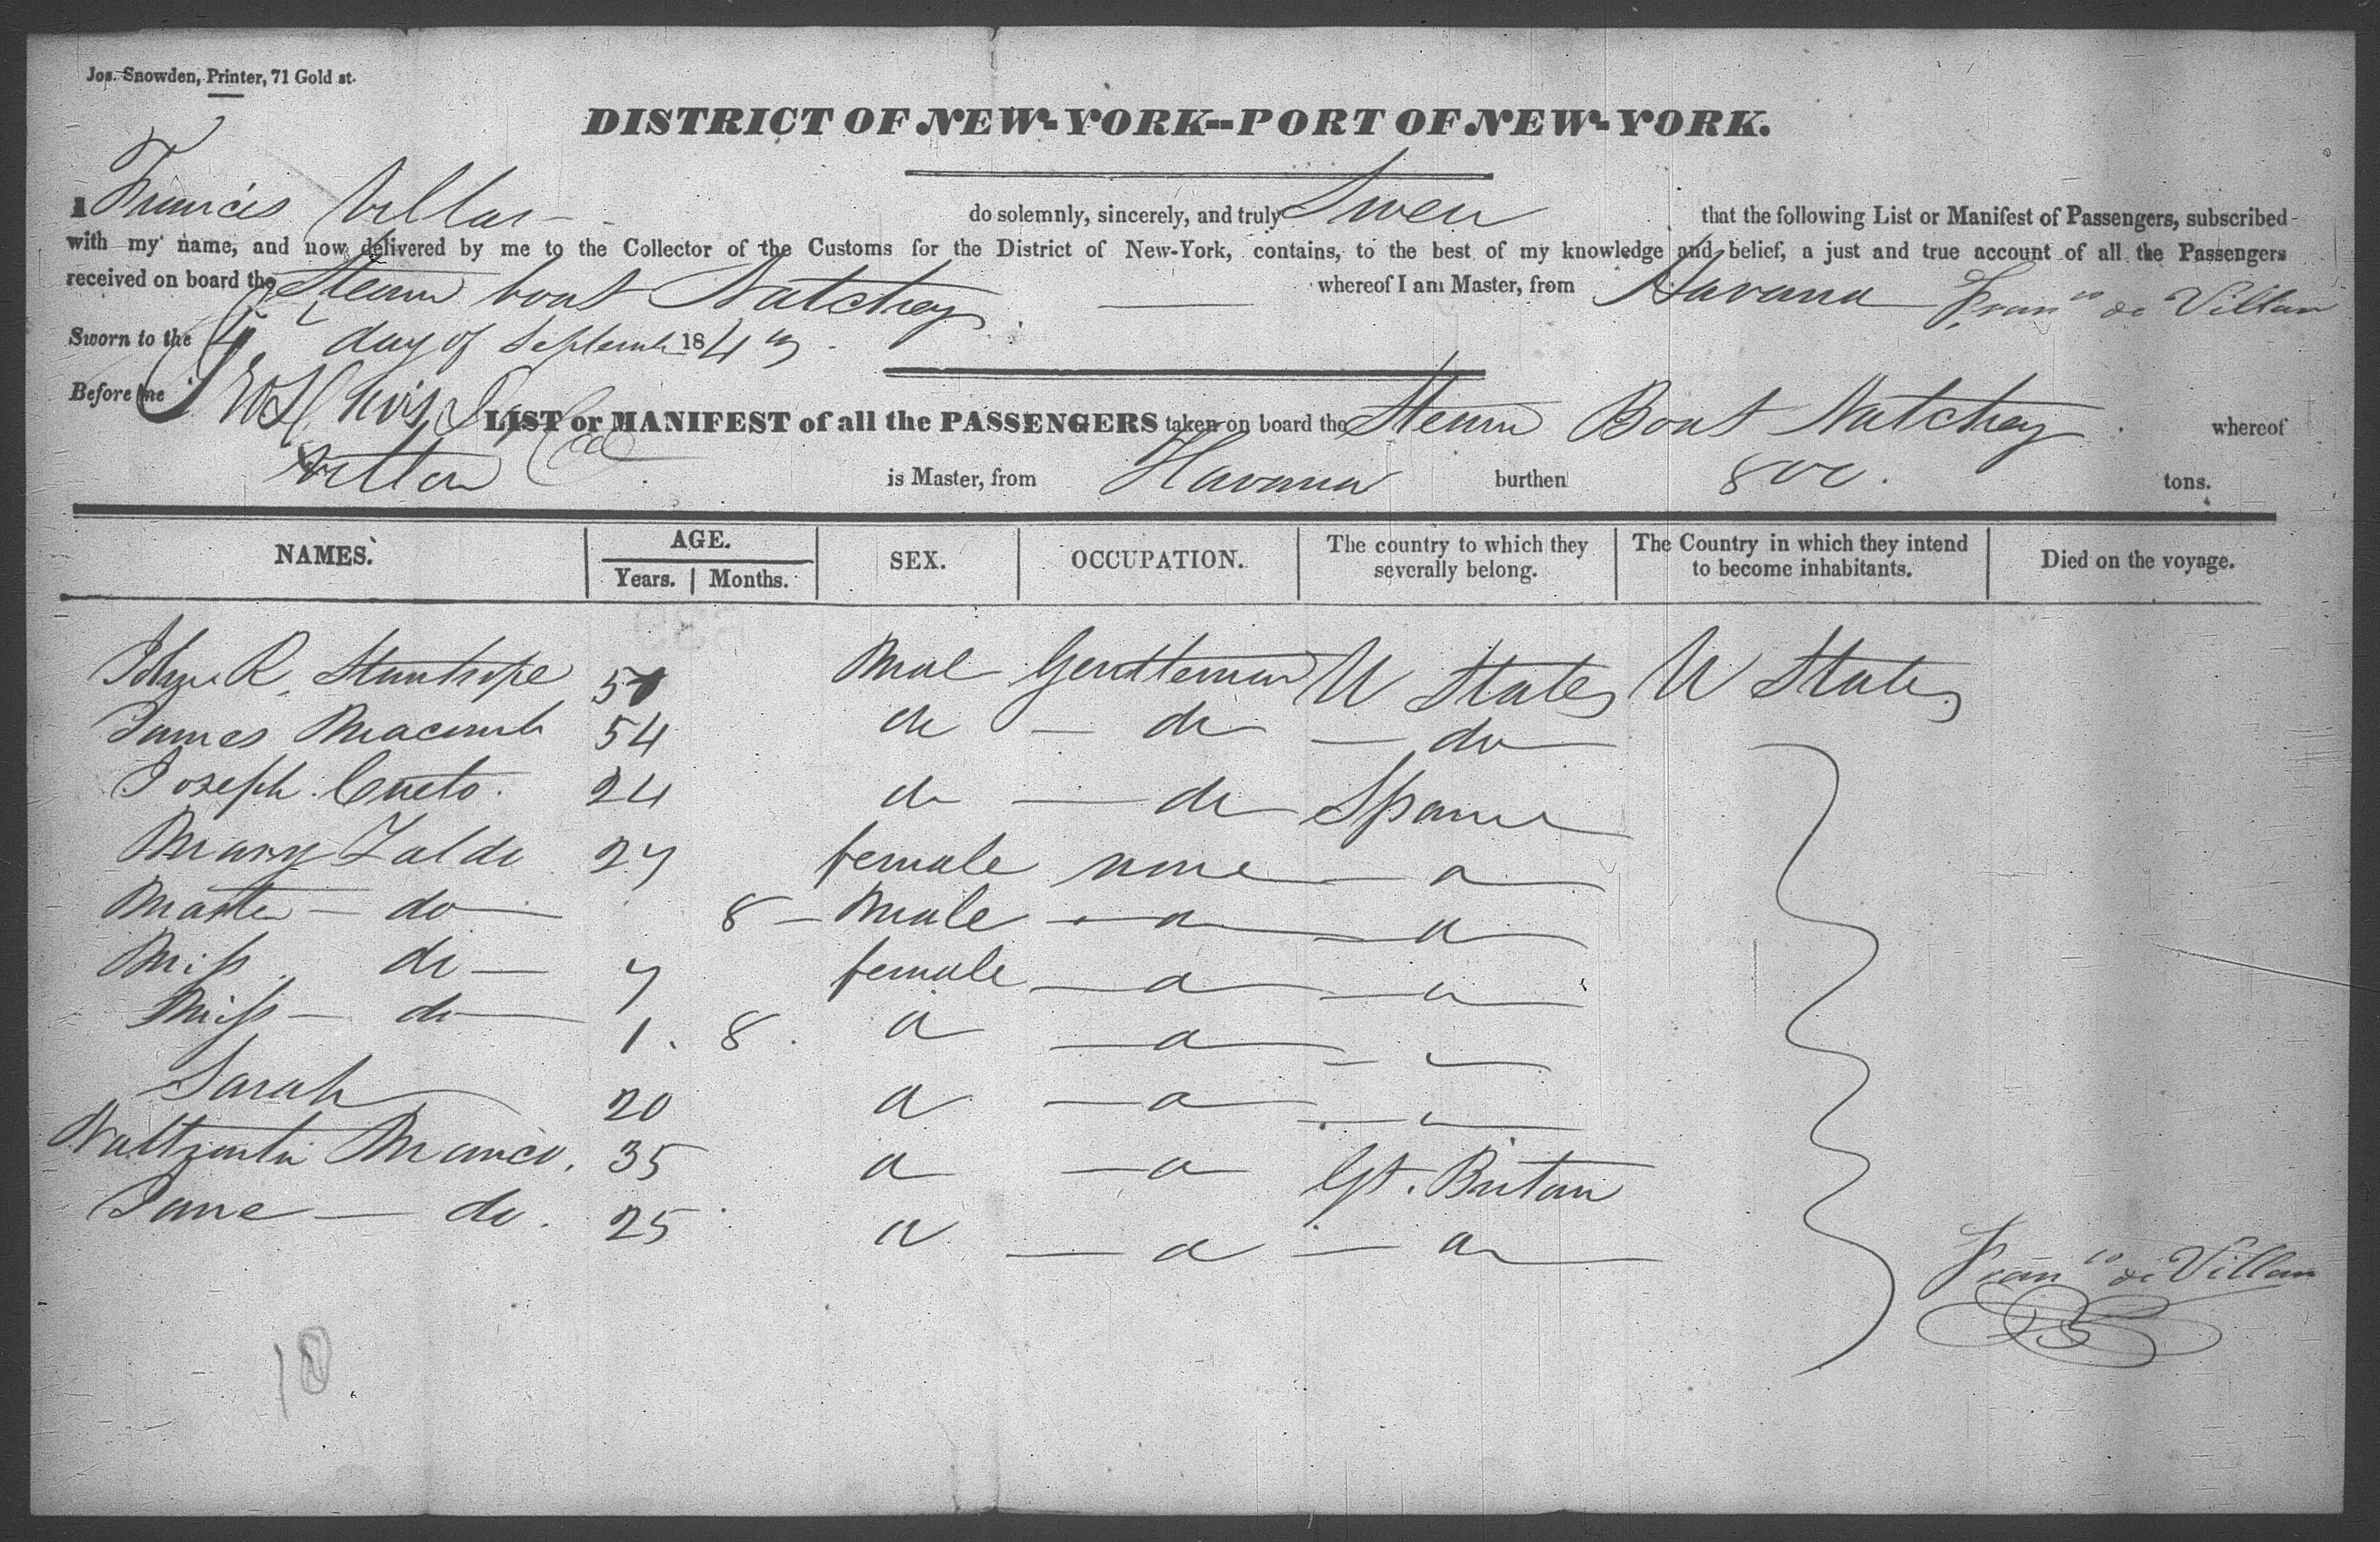 Jos. Snowden, Printer, 71 Gold st.
DISTRICT OF NEW-YORK--PORT OF NEW-YORK.
I Francis Villar do solemnly, sincerely, and truly Swear that the following List or Manifest of Passengers, subscribed
with my name, and now delivered by me to the Collector of the Customs for the District of New-York, contains, to the best of my knowledge and belief, a just and true account of all the Passengers
received on board the Steam boat Natchez whereof I am Master, from Havana Fran co de Villar
Sworn to the 4 day of September 1843
Before me
LIST or MANIFEST of all the PASSENGERS taken on board the Steam Boat Natchez whereof
Villar is Master, from Havana burthen 800 tons.
NAMES. AGE. SEX. OCCUPATION. The country to which they severally belong. The Country in which they intend to become inhabitants. Died on the voyage.
Years. Months.
John R. Stanhope 51 Mal Gentleman U States U States
James Macomb 54 do do do
Joseph Cueto 24 do do Spain
Mary Zaldo 27 female none do
Master do 8 Male do do
Miss do 7 female do do
Miss do 1 8 do do do
Sarah 20 do do do
35 do do Gt. Britain
Jane do 25 do do do
Fran co de Villar
18